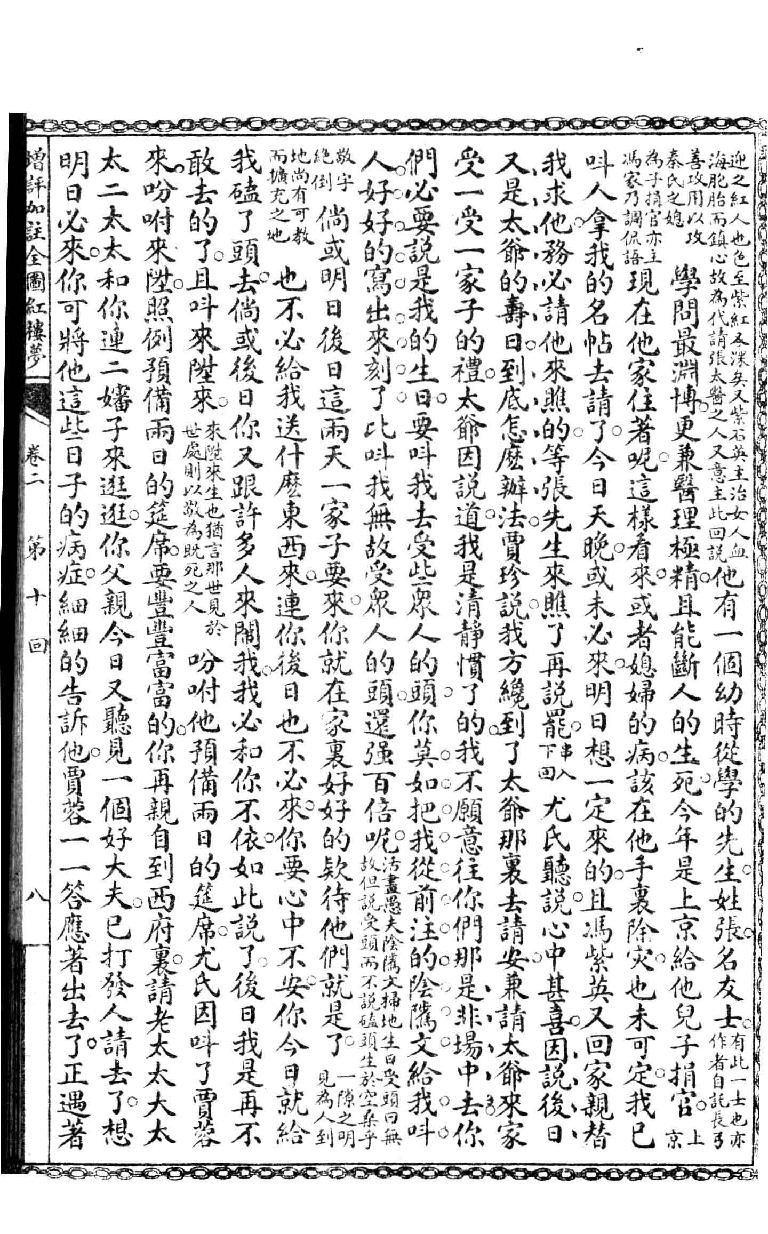 迎之紅人也色至紫紅五深矣又紫石英主治女人血海胞胎而鎮心故為代請張太醫之人又意主此回說他有一個幼時從學的先生姓張名友士有此一士也亦作者自託長弓
善攻用以攻秦氏之媳為子捐官亦主馮家乃調侃語學問最淵博更兼醫理極精且能斷人的生死今年是上京給他兒子捐官上京
現在他家住著呢這樣看來或者媳婦的病該在他手裏除災也未可定我已
呌人拿我的名帖去請了今日天晚或未必來明日想一定來的且馮紫英又回家親替
我求他務必請他來瞧的等張先生來瞧了再說罷串入下回尤氏聽說心中甚喜因說後日
又是太爺的壽日到底怎麽辦法賈珍說我方纔到了太爺那裏去請安兼請太爺來家
受一受一家子的禮太爺因說道我是清靜慣了的我不願意往你們那是非場中去你
們必要說是我的生日要呌我去受些眾人的頭你莫如把我從前注的陰隲文給我呌
人好好的寫出來刻了比呌我無故受眾人的頭還强百倍呢活畫愚夫陰隲文掃地生日受頭曰無故但說受頭而不說磕頭生於空桑乎
敬字絕倒倘或明日後日這兩天一家子要來你就在家裏好好的欵待他們就是了一隙之明見為人到
地尚有可教而擴充之地也不必給我送什麽東西來連你後日也不必來你要心中不安你今日就給
我磕了頭去倘或後日你又跟許多人來鬧我我必和你不依如此說了後日我是再不
敢去的了且呌來陞來來陞來生也猶言那世見於世處則以敬為既死之人吩咐他預備兩日的筵席尤氏因呌了賈蓉
來吩咐來陞照例預備兩日的筵席要豐豐富富的你再親自到西府裏請老太太大太
太二太太和你連二嬸子來逛逛你父親今日又聽見一個好大夫已打發人請去了想
明日必來你可將他這些日子的病症細細的告訴他賈蓉一一答應著出去了正遇著
增評加註全圖紅樓夢 卷二 第十回 八